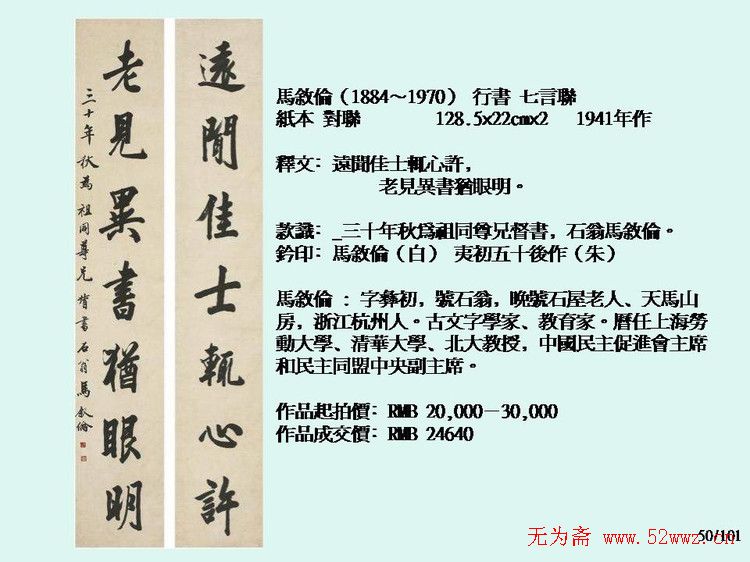 遠聞佳士輒心許
老見異書猶眼明
三十年秋為祖同尊兄督書石翁馬敘倫
馬敘倫（1884～1970） 行書 七言聯
紙本 對聯 128.5x22cmx2 1941年作
釋文: 遠聞佳士輒心許，
老見異書猶眼明。
款識: _三十年秋爲祖同尊兄督書，石翁馬敘倫。
鈐印: 馬敘倫（白） 夷初五十後作（朱）
馬敘倫 : 字彝初，號石翁，晚號石屋老人、天馬山
房，浙江杭州人。古文字學家、教育家。曆任上海勞
動大學、清華大學、北大教授，中國民主促進會主席
和民主同盟中央副主席。
作品起拍價: RMB 20,000－30,000
作品成交價: RMB 24640
50/101
无为斋 www.52wwz.cn